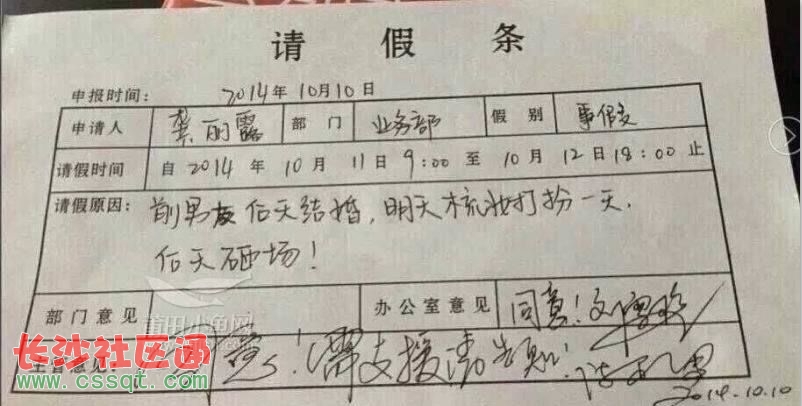 请 假 条
申报时间： 2014年 10月10日
申请人 龚丽露 部 门 业务部 假 别 事假
请假时间 自 2014 年 10 月 11 日 9:00 至 10 月 12 日 18:00 止
请假原因： 前男友后天结婚，明天梳妆打扮一天，
后天砸场！
部门意见 办公室意见 同意！
莆田小鱼网
主管意见 意！需支援请告知！
2014.10.10
长沙社区通
www.cssqt.com